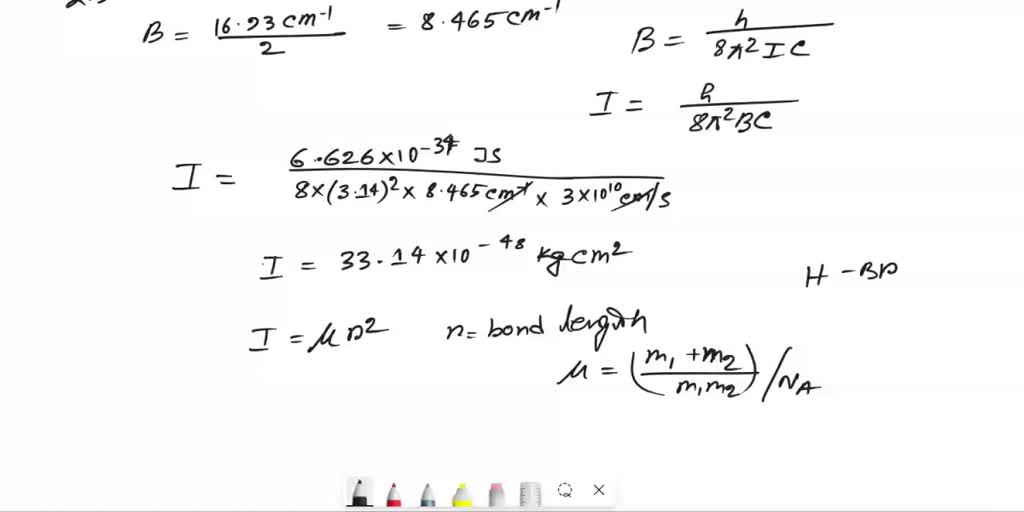 B = 16.93 cm⁻¹ / 2 = 8.465 cm⁻¹
B = h / 8π² I C
I = h / 8π² B C
I = 6.626 × 10⁻³⁴ JS / 8 × (3.14)² × 8.465 cm⁻¹ × 3 × 10¹⁰ cm/s
I = 33.14 × 10⁻⁴⁸ kg cm²
H - BR
I = μ r² r = bond length
μ = (m₁ + m₂ / m₁ m₂) / N_A